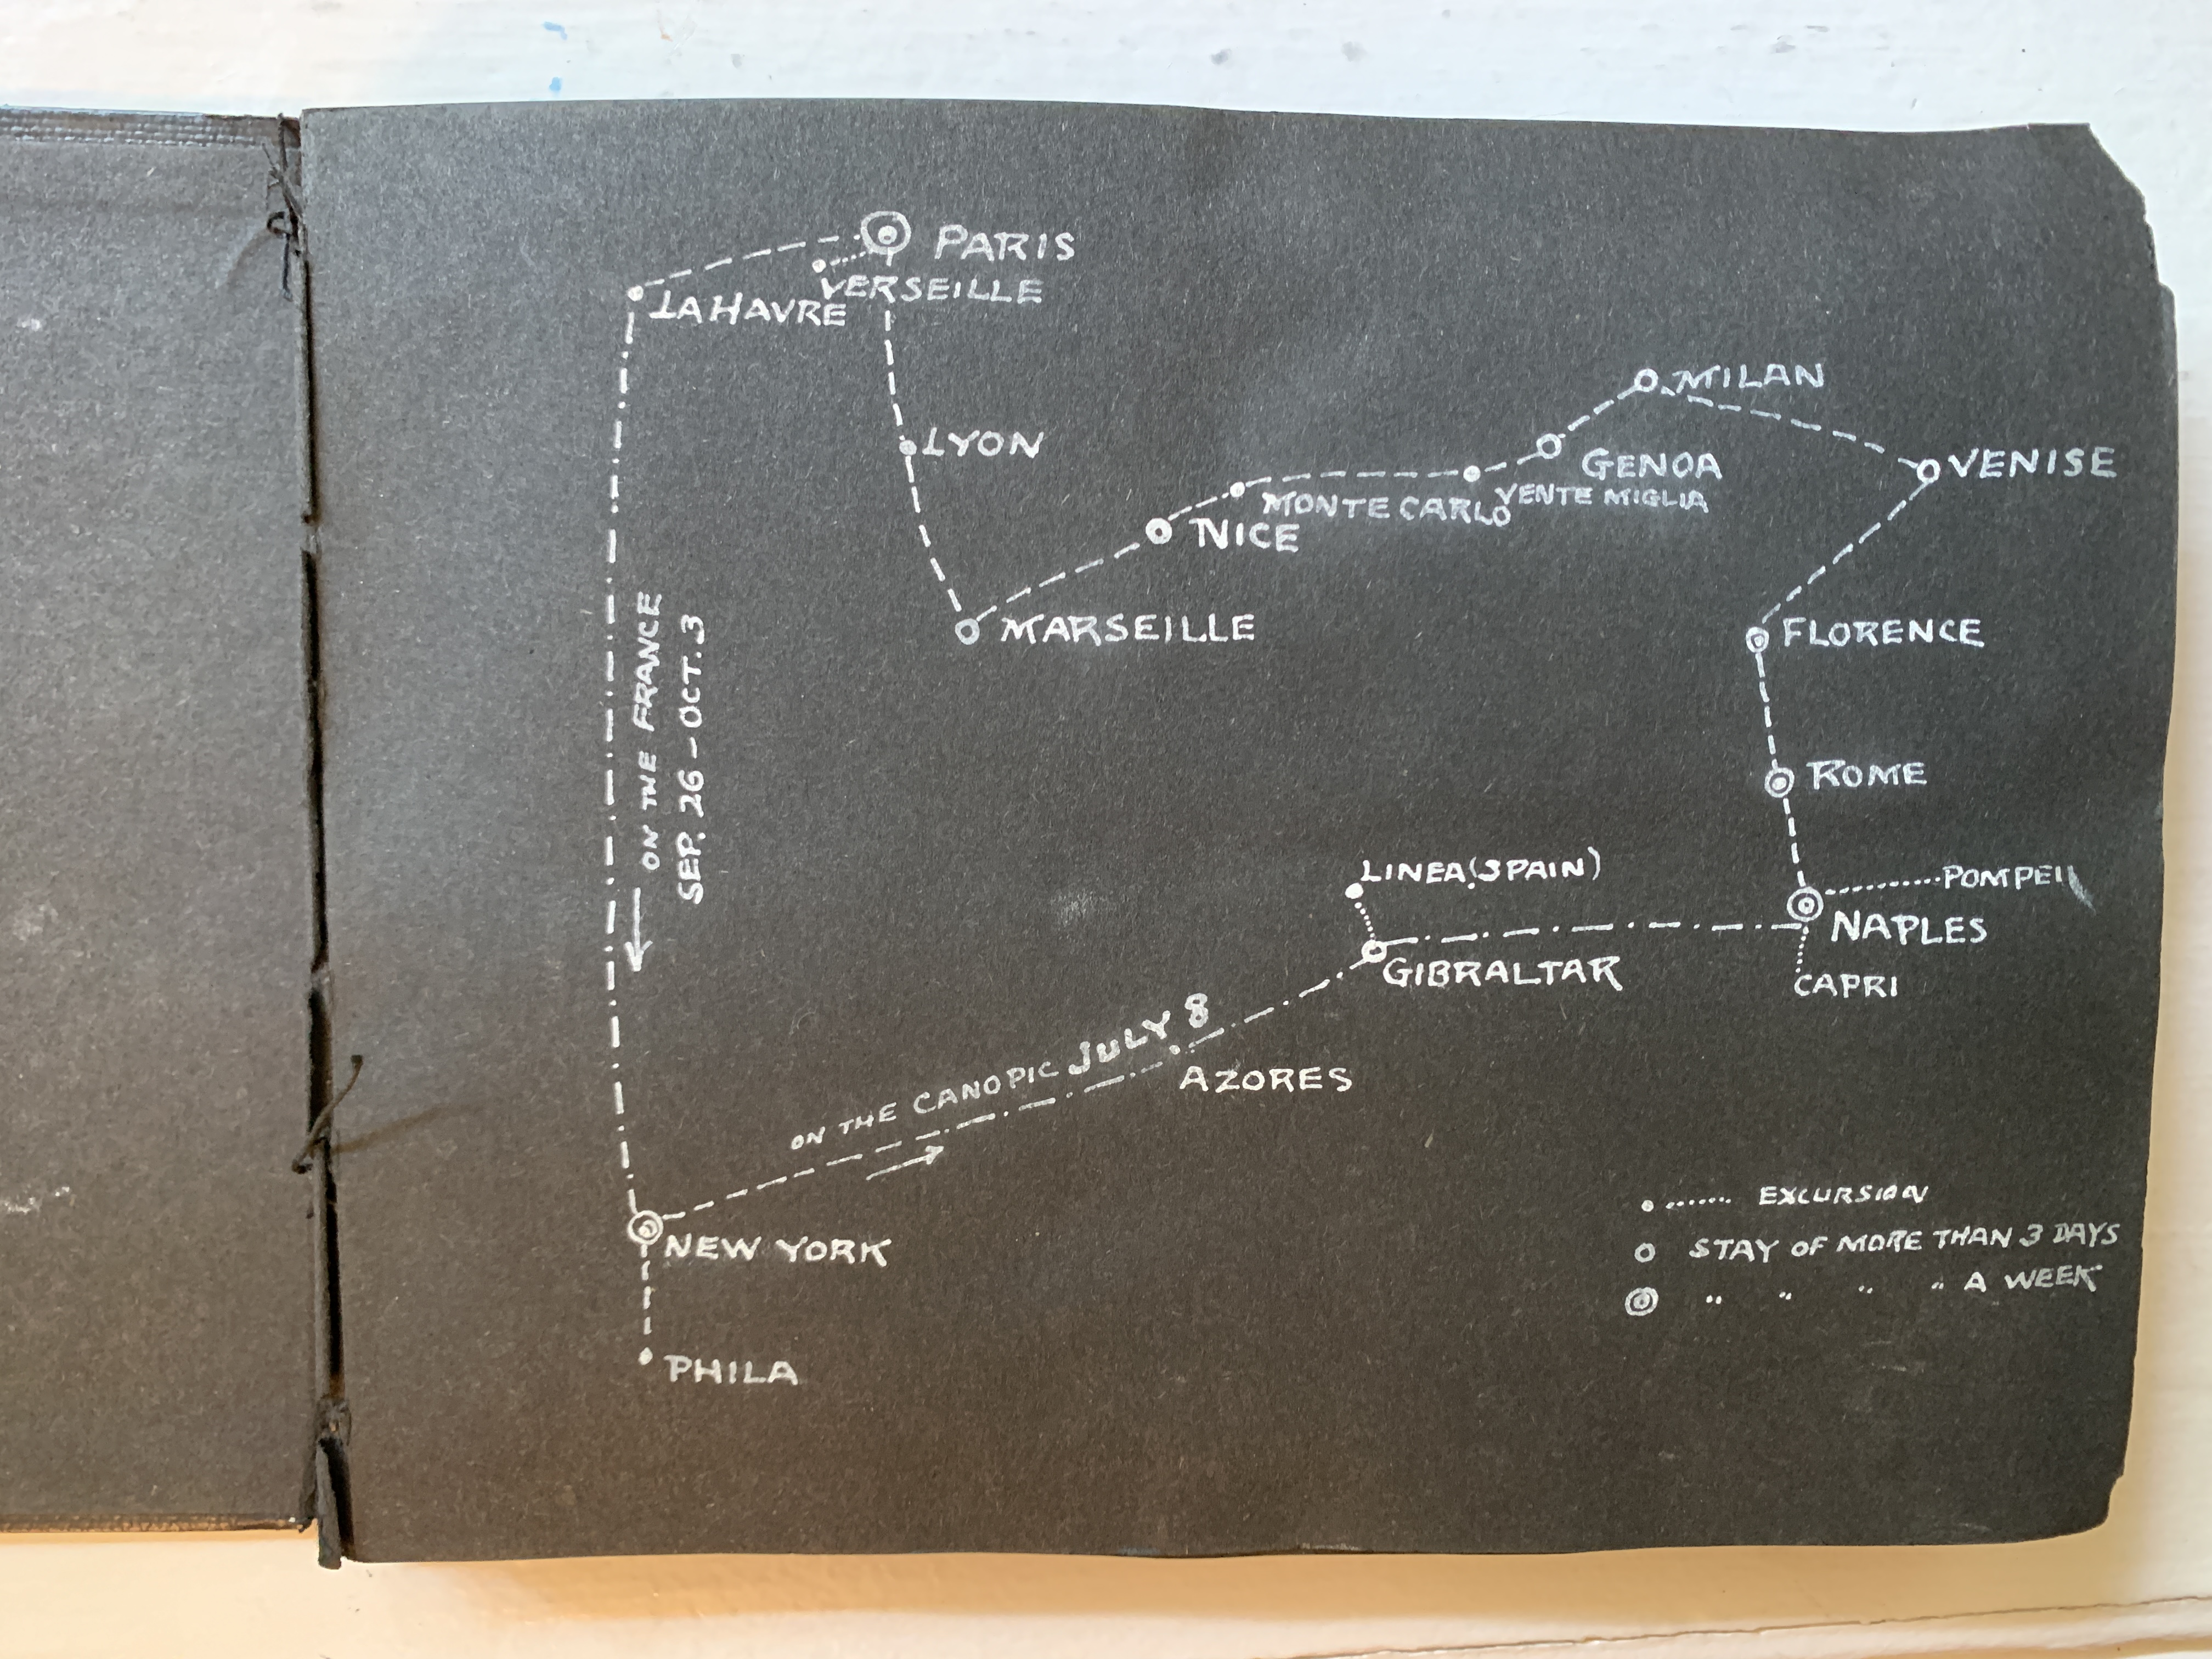 PARIS
VERSEILLE
LA HAVRE
LYON
MILAN
GENOA
VENISE
VENTE MIGLIA
MONTE CARLO
NICE
MARSEILLE
FLORENCE
ON THE FRANCE
SEP. 26 - OCT. 3
ROME
LINEA (SPAIN)
POMPEII
NAPLES
GIBRALTAR
CAPRI
ON THE CANOPIC JULY 8
AZORES
NEW YORK
PHILA
EXCURSION
STAY OF MORE THAN 3 DAYS
" " " " A WEEK